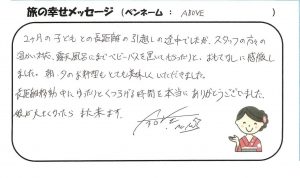 旅の幸せメッセージ (ペンネーム： ABOVE )
2ヶ月の子どもとの長距離の引越しの途中でしたが、スタッフの方々の
温かい対応、露天風呂にまでベビーバスを置いて下さったりと、おもてなしに感激し
ました。朝・夕のお料理もとても美味しくいただきました。
長距離移動中にゆったりとくつろげる時間を本当にありがとうございました。
娘が大きくなったら また来ます。